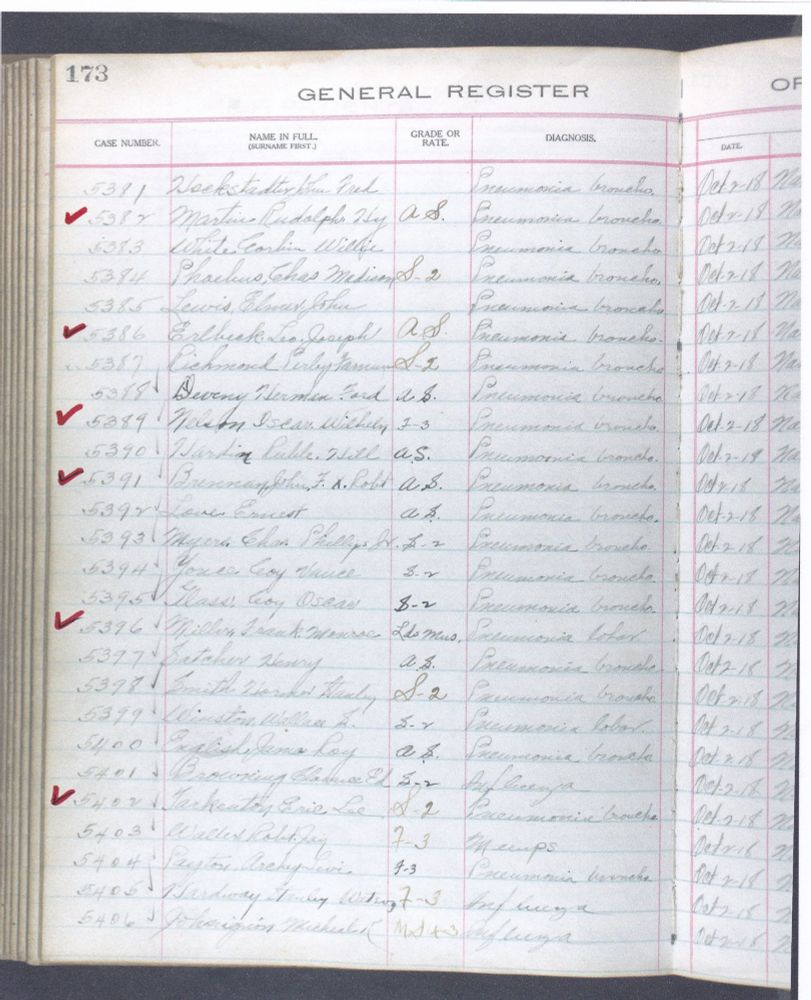 173
GENERAL REGISTER OF
CASE NUMBER. NAME IN FULL. (SURNAME FIRST.) GRADE OR RATE. DIAGNOSIS. DATE.
5381 Fred Pneumonia broncho. Oct-2-18 Na
5382 Martin Rudolph Hy A.S. Pneumonia broncho. Oct-2-18 Na
5383 White, Willie Pneumonia broncho. Oct-2-18 Na
5384 Phoebus, Chas Madison S-2 Pneumonia broncho. Oct-2-18 Na
5385 Lewis, Elmer John Pneumonia broncho. Oct-2-18 Na
5386 Erlbeck Leo Joseph A.S. Pneumonia broncho. Oct-2-18 Na
5387 Richmond S-2 Pneumonia broncho. Oct-2-18 Na
5388 Herman Ford A.S. Pneumonia broncho. Oct-2-18 Na
5389 Nelson Oscar Wilhelm F-3 Pneumonia broncho. Oct-2-18 Na
5390 Hardin A.S. Pneumonia broncho. Oct-2-18 Na
5391 Brennan, John F. X. Robt A.S. Pneumonia broncho. Oct 2-18 Na
5392 Love Ernest A.S. Pneumonia broncho. Oct-2-18 Na
5393 Myers, Chas. Phillips Jr. S-2 Pneumonia broncho. Oct-2-18 Na
5394 Coy Vance S-2 Pneumonia broncho. Oct-2-18 Na
5395 Glass, Coy Oscar S-2 Pneumonia broncho. Oct-2-18 Na
5396 Miller, Frank Monroe Lds Mus. Pneumonia lobar Oct-2-18 Na
5397 Satcher Henry A.S. Pneumonia broncho. Oct 2-18 Na
5398 Smith S-2 Pneumonia broncho. Oct-2-18 Na
5399 Winston, Wallace S-2 Pneumonia lobar. Oct-2-18 Na
5400 English, James Roy A.S. Pneumonia broncho Oct-2-18 Na
5401 Browning Clarence Ed S-2 Influenza Oct-2-18 Na
5402 Tarkenton, Eric Lee S-2 Pneumonia broncho. Oct-2-18 Na
5403 Robt. F-3 Mumps Oct-2-18 Na
5404 Payton Archey Levi F-3 Pneumonia broncho. Oct-2-18 Na
5405 Hardway, Stanley F-3 Influenza Oct-2-18 Na
5406 Influenza Oct-2-18 Na